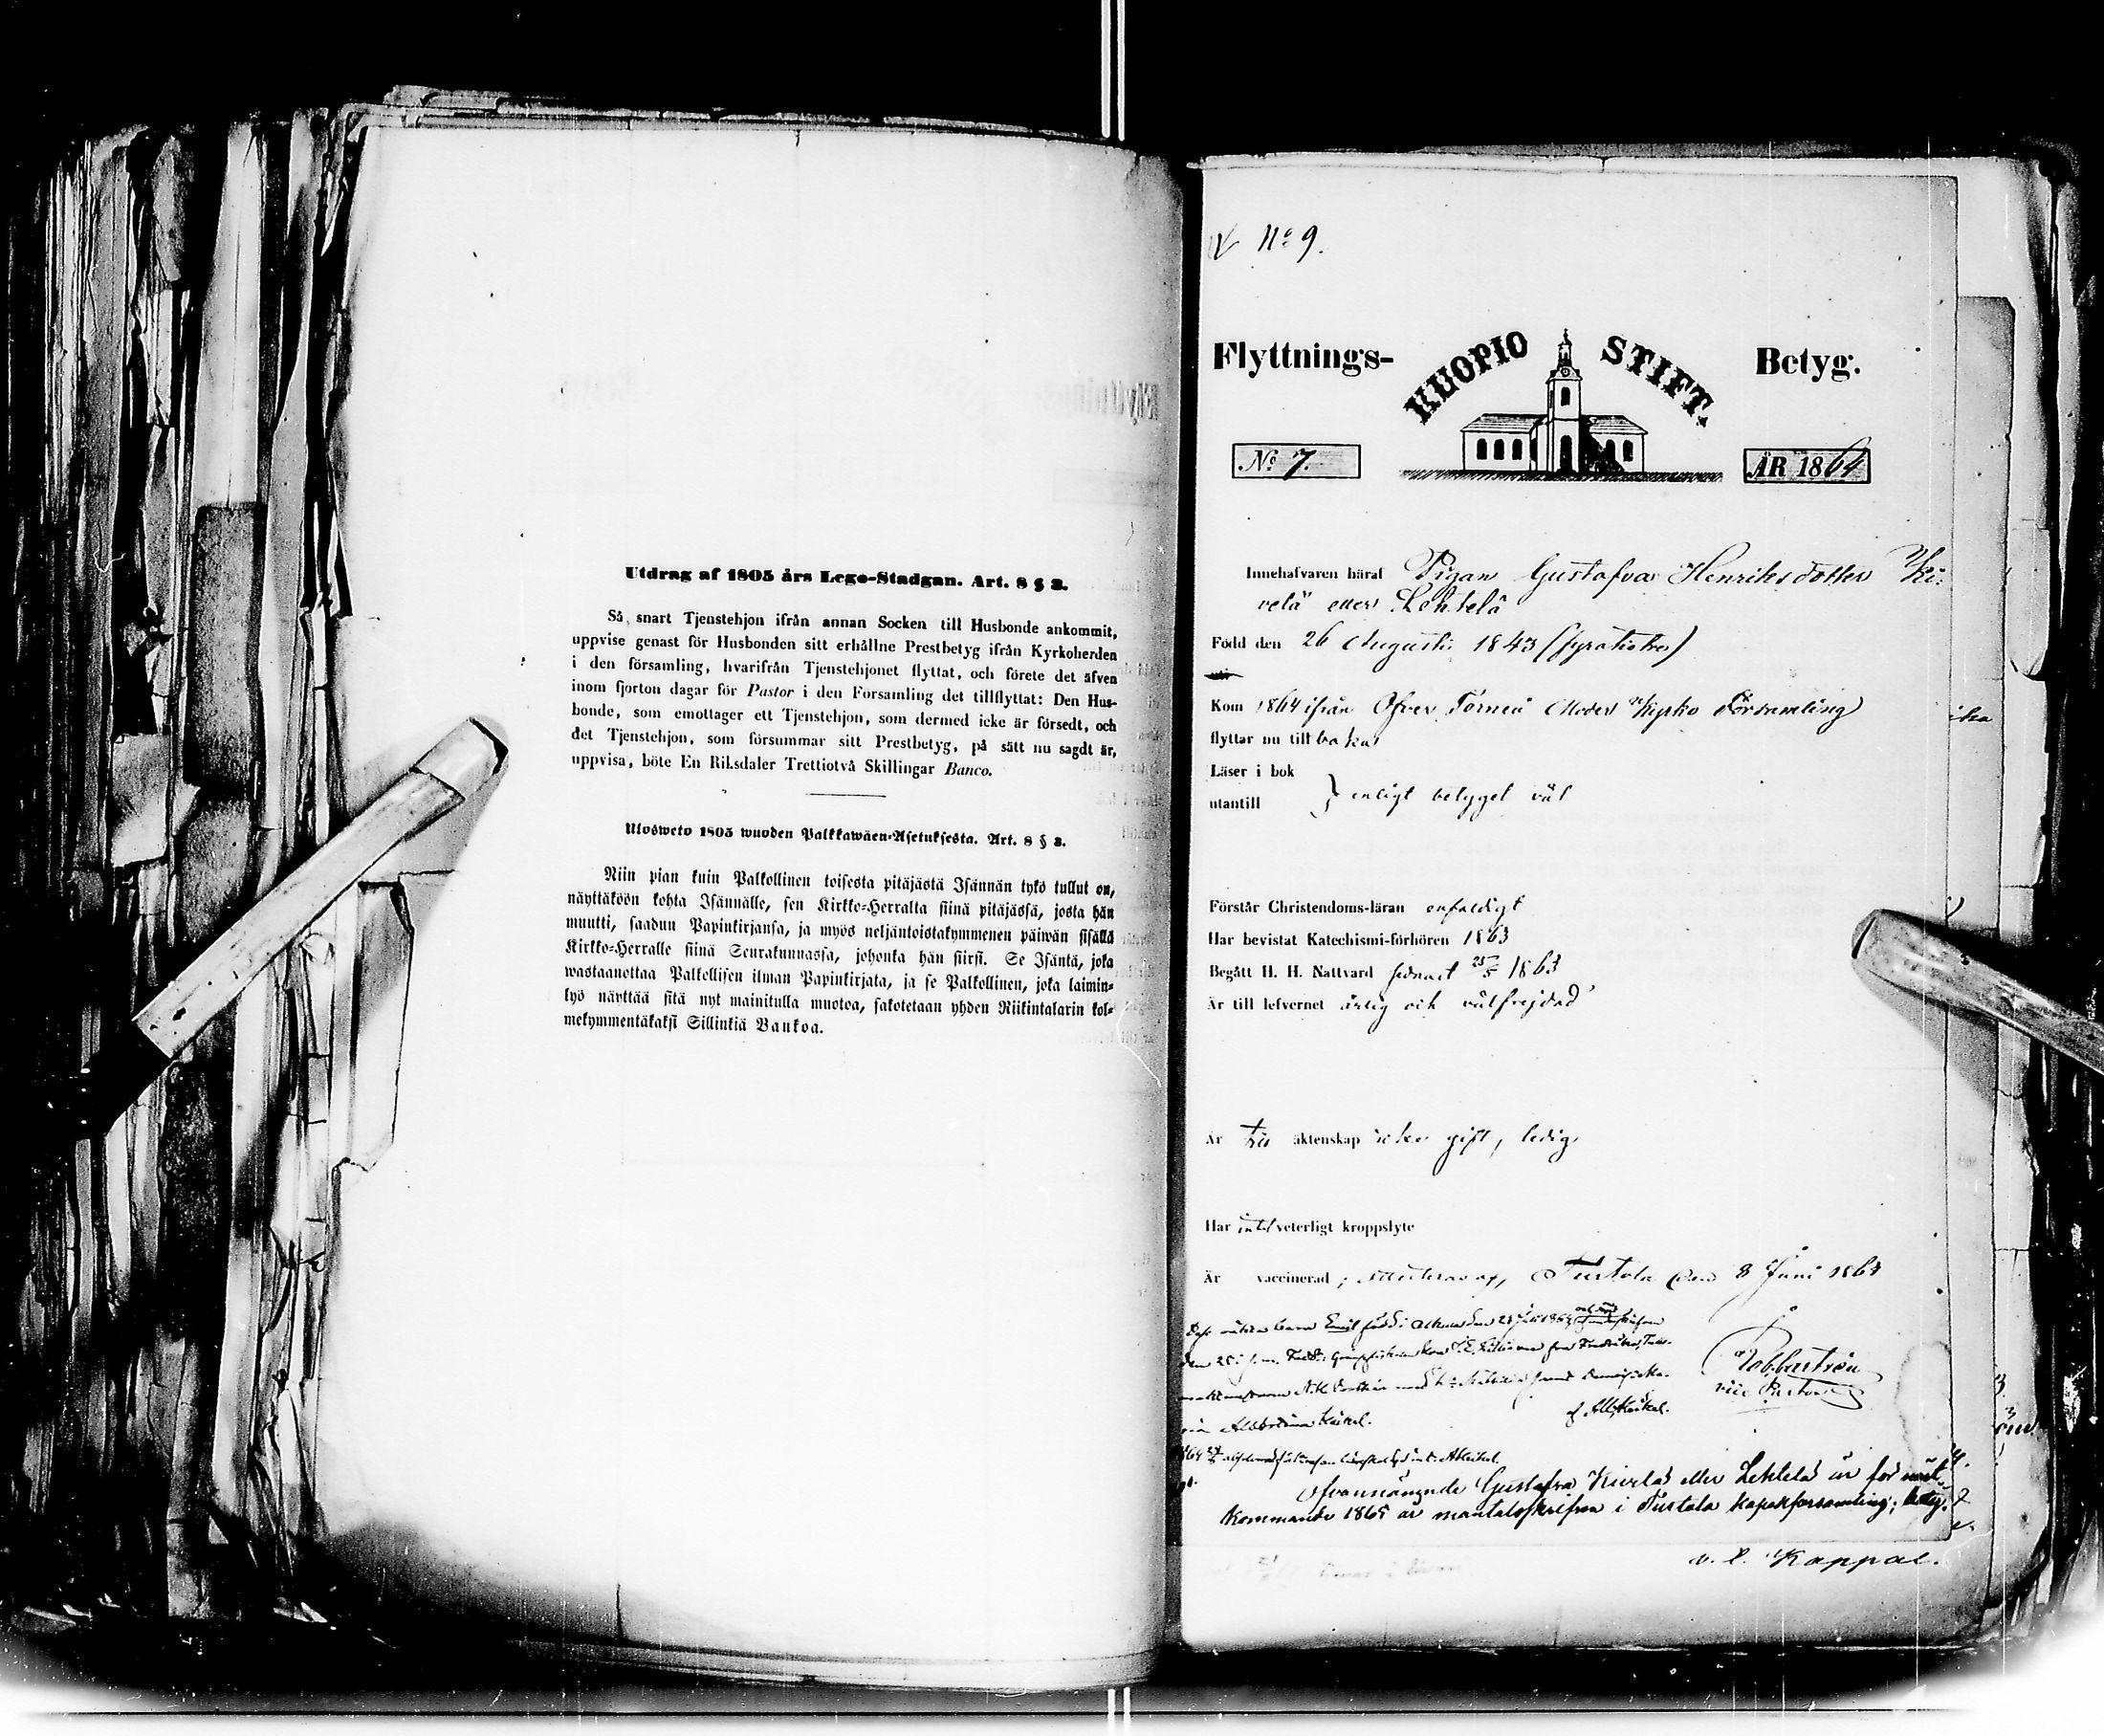 Utdrag af 1805 års Lego-Stadgan. Art. 8 § 2.
Så snart Tjenstehjon ifrån annan Socken till Husbonde ankommit,
uppvise genast för Husbonden sitt erhållne Prestbetyg ifrån Kyrkoherden
i den församling, hvarifrån Tjenstehjonet flyttat, och förete det äfven
inom fjorton dagar för Pastor i den Församling det tillflyttat: Den Hus-
bonde, som emottager ett Tjenstehjon, som dermed icke är försedt, och
det Tjenstehjon, som försummar sitt Prestbetyg, på sätt nu sagdt är,
uppvisa, böte En Riksdaler Trettiotvå Skillingar Banco.
Ulosweto 1805 wuoden Palkkawäen-Asetuksesta. Art. 8 § 2.
Niin pian kuin Palkollinen toisesta pitäjästä Isännän tykö tullut on,
näyttäköön kohta Isännälle, sen Kirkko-Herralta siinä pitäjässä, josta hän
muutti, saadun Papinkirjansa, ja myös neljäntoistakymmenen päiwän sisällä
Kirkko-Herralle siinä Seurakunnassa, johonka hän siirsi. Se Isäntä, joka
wastaanottaa Palkollisen ilman Papinkirjata, ja se Palkollinen, joka laimin-
lyö näyttää sitä nyt mainitulla muotoa, sakotetaan yhden Riikintalarin kol-
mekymmentäkaksi Sillinkiä Bankoa.
No 9.
Flyttnings- KUOPIO STIFT. Betyg.
No 7. ÅR 1864
Innehafvaren häraf Pigan Gustafva Henriksdotter Ki-
velä eller Lehtelä
Född den 26 Augusti 1843
Kom 1864 ifrån Öfver Torneå Moder Kyrko Församling
flyttar nu till
Läser i bok
utantill } enligt betyget väl
Förstår Christendoms-läran enfaldigt
Har bevistat Katechismi-förhören 1863
Begått H. H. Nattvard sednast 25/5 1863
Är till lefvernet ärlig och välfrejdad
Är till äktenskap icke gift, ledig
Har intet veterligt kroppslyte
Är vaccinerad, Turtola den 8 Juni 1864
vice Pastor
Ofvannämnde Gustafva Kivelä eller Lehtelä är för näst-
kommande 1865 år mantalsskrifven i Turtola kapellförsamling; betyg.
v. t. Kappal.